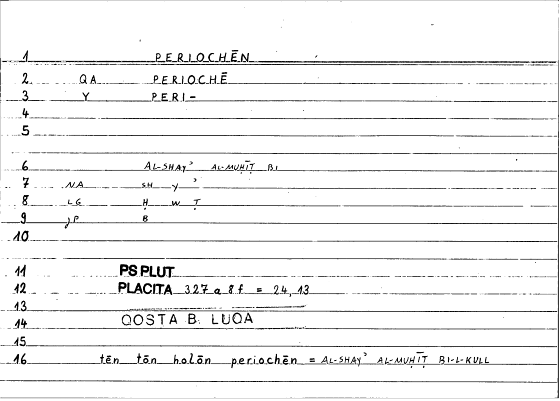 1 PERIOCHĒN
2 QA PERIOCHĒ
3 Y PERI-
4
5
6 AL-SHAYʾ AL-MUḤĪṬ BI
7 NA SH Y ʾ
8 LG Ḥ W Ṭ
9 JP B
10
11 PS PLUT
12 PLACITA 327 a 8 f = 24, 13
13
14 QOSTA B. LUQA
15
16 tēn tōn holōn periochēn = AL-SHAYʾ AL-MUḤĪṬ BI-L-KULL